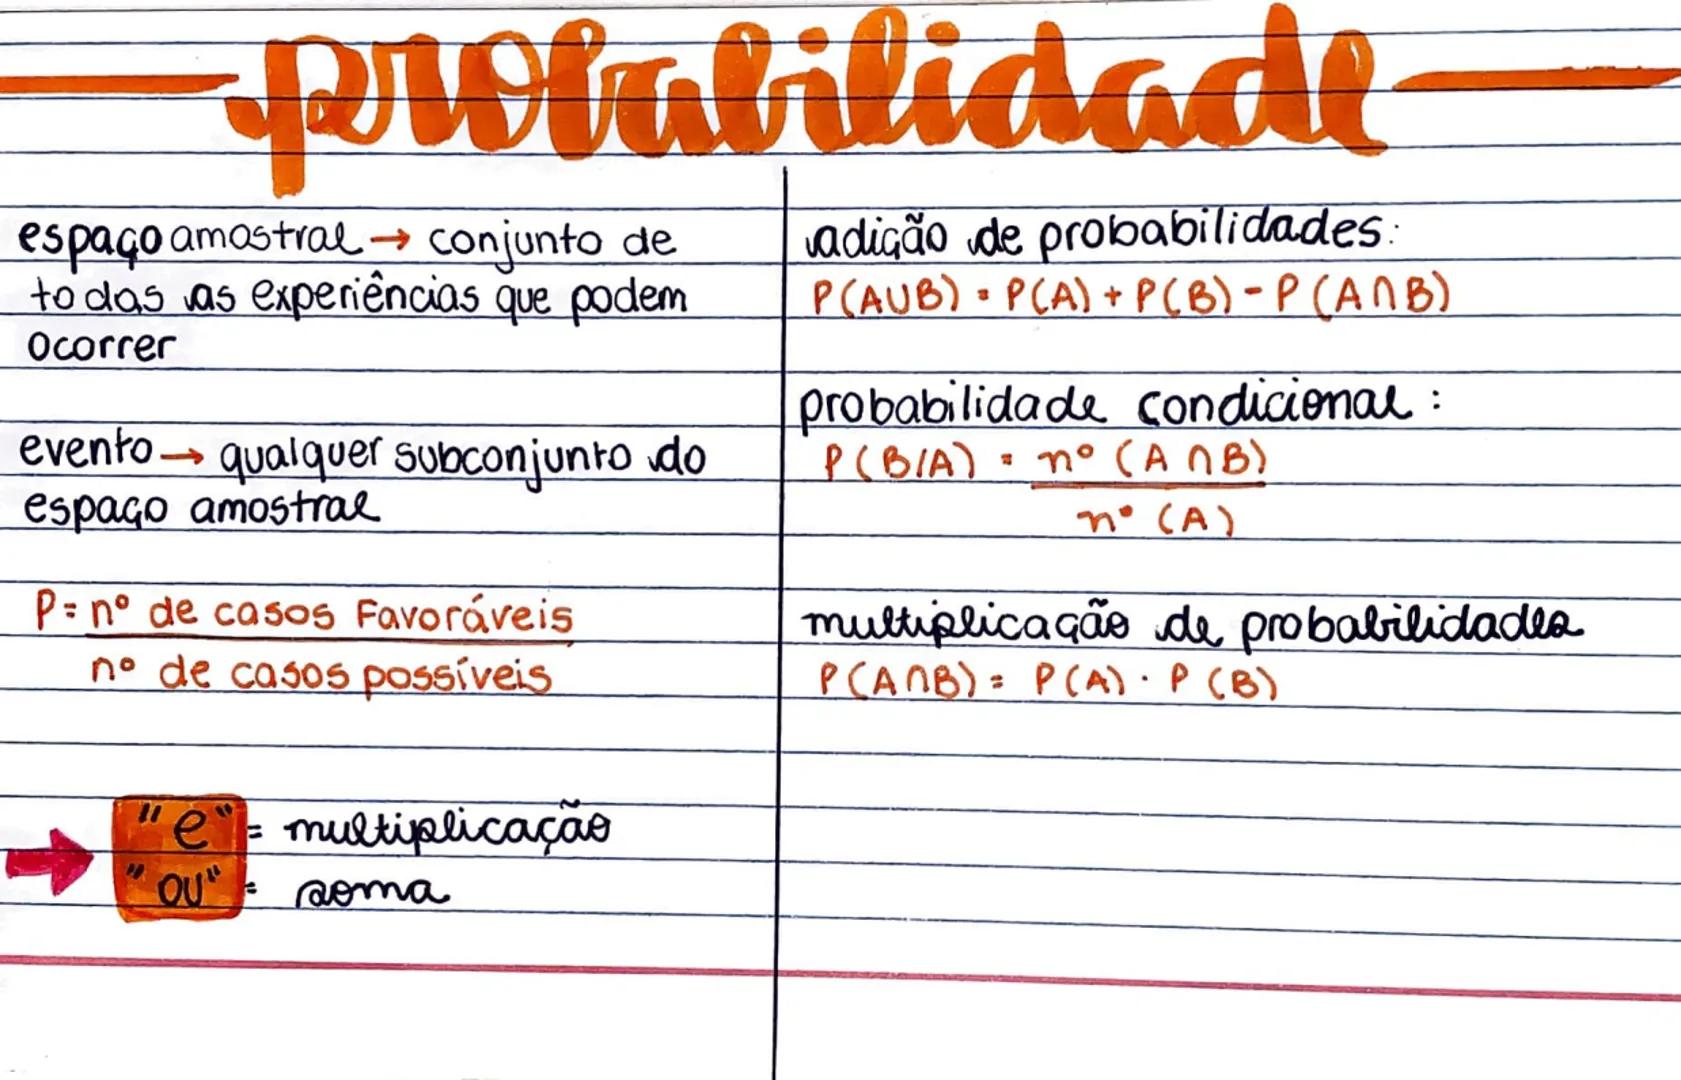 probabilidade
espaço amostral → conjunto de
todas as experiências que podem
ocorrer
evento → qualquer subconjunto do
espaço amostral
P = nº de casos Favoráveis
nº de casos possíveis
"e" = multiplicação
"ou" = soma
adição de probabilidades:
P(A∪B) = P(A) + P(B) - P(A∩B)
probabilidade condicional:
P(B/A) = nº (A∩B)
nº (A)
multiplicação de probabilidades
P(A∩B) = P(A) · P(B)